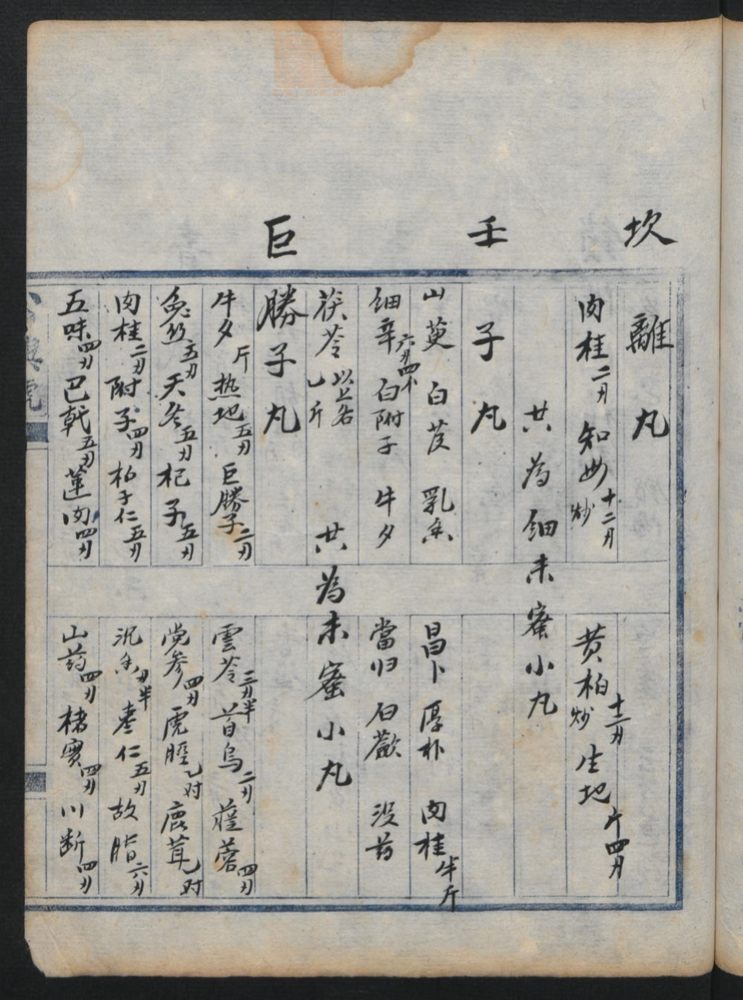 坎離丸
肉桂二刃 知母十二刃炒 黄柏十二刃炒 生地斤四刃
共為細末蜜小丸
壬子丸
山萸 白芨 乳香 昌卜 厚朴 肉桂半斤
細辛六刃四小 白附子 牛夕 當归 白蘞 没药
茯苓以上各乙斤 共為末蜜小丸
巨勝子丸
牛夕斤 热地五刃 巨勝子二刃 雲苓三刃半 首烏二刃 蓯蓉四刃
兔丝五刃 天冬五刃 杞子五刃 党参四刃 虎脛乙对 鹿茸对
肉桂二刃 附子四刃 柏子仁五刃 沉香刃半 枣仁五刃 故脂六刃
五味四刃 巴戟五刃 蓮肉四刃 山药四刃 楮實四刃 川断四刃